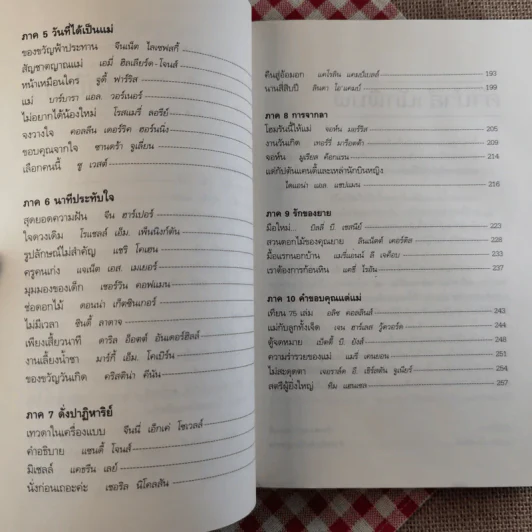 ภาค 5 วันที่ได้เป็นแม่
ของขวัญฟ้าประทาน จีนเน็ต ไลเซฟสกี้
สัญชาตญาณแม่ เอมี่ ฮิลเลียร์ด-โจนส์
หน้าเหมือนใคร รูตี้ ฟาร์ริส
แม่ บาร์บารา แอล. วอร์เนอร์
ไม่อยากได้น้องใหม่ โรสแมรี่ ลอรีย์
จงวางใจ คอลลีน เดอร์ริค ฮอร์นนิ่ง
ขอบคุณจากใจ ซานดร้า จูเลียน
เลือกคนนี้ ซู เวสต์
ภาค 6 นาทีประทับใจ
สุดยอดความฝัน จีน ฮาร์เปอร์
ใจดวงเดิม โรแชลล์ เอ็ม. เพ็นนิงก์ตัน
รูปลักษณ์ไม่สำคัญ แชริ โคเฮน
ครูคนเก่ง แจเน็ต เอส. เมเยอร์
มุมมองของเด็ก เชอร์วิน คอฟแมน
ช่อดอกไม้ ดอนน่า เกิตซินเกอร์
ไม่มีเวลา ซินดี้ ลาดาจ
เพียงเสี้ยวนาที ดาริล อ็อตต์ อันเดอร์ฮิลล์
งานเลี้ยงน้ำชา มาร์กี้ เอ็ม. โคเบิร์น
ของขวัญวันเกิด คริสติน่า คีนัน
ภาค 7 ดั่งปาฏิหาริย์
เทวดาในเครื่องแบบ จีนนี่ เอ็กเค่ โซเวลส์
คำอธิบาย แซนดี้ โจนส์
มิเชลล์ แคธรีน เลย์
นั่งก่อนเถอะค่ะ เชอริล นิโคลสัน
คืนสู่อ้อมอก แคโรลีน แคมป์เบลล์ 193
นานสี่สิบปี ลินดา โอ'แคมป์ 199
ภาค 8 การจากลา
โฮมรันนี้ให้แม่ จอห์น มอร์ริส 205
งานวันเกิด เทอร์รี่ มาร็อตต้า 209
จอห์น มูเรียล ค็อกแรน 214
แด่กัปตันแคนดี้และเหล่านักบินหญิง
ไดแอน่า แอล. แชปแมน 216
ภาค 9 รักของยาย
มือใหม่... บิลลี บี. เชสนีย์ 223
สวนดอกไม้ของคุณยาย ลินเน็ตต์ เคอร์ติส 228
มื้อแรกนอกบ้าน แมรี่แอนน์ ลี เจค็อบ 233
เราต้องการก้อนหิน แคซี่ ไรอัน 237
ภาค 10 คำขอบคุณแด่แม่
เทียน 75 เล่ม อลิซ คอลลินส์ 243
แม่กับลูกทั้งเจ็ด เจน ฮาร์เลส วู้ดวาร์ด 247
ตู้จดหมาย เบ็ตตี้ บี. ยังส์ 248
ความร่ำรวยของแม่ แมรี่ เคนยอน 251
ไม่สะดุดตา เจอราลด์ อี. เธิร์สตัน จูเนียร์ 254
สตรีผู้ยิ่งใหญ่ ทิม แฮนเซล 257